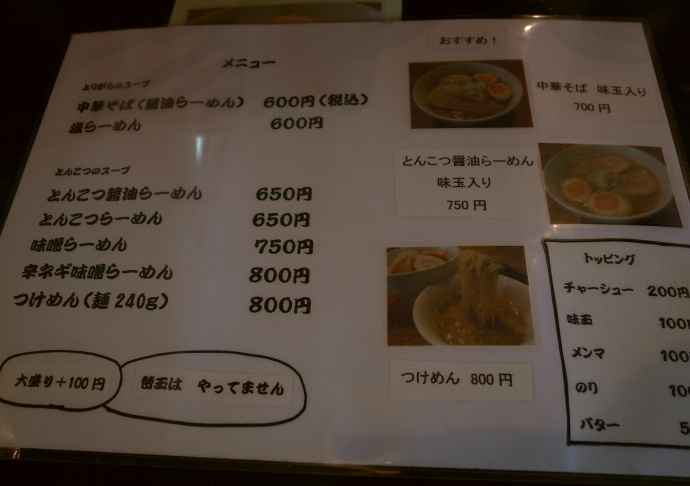 メニュー
とりがらのスープ
中華そば(醤油らーめん) 600円(税込)
塩らーめん 600円
とんこつのスープ
とんこつ醤油らーめん 650円
とんこつらーめん 650円
味噌らーめん 750円
辛ネギ味噌らーめん 800円
つけめん(麺240g) 800円
大盛り+100円
替玉は やってません
おすすめ!
中華そば 味玉入り
700円
とんこつ醤油らーめん
味玉入り
750円
つけめん 800円
トッピング
チャーシュー 200円
味玉 100
メンマ 100
のり 10
バター 5